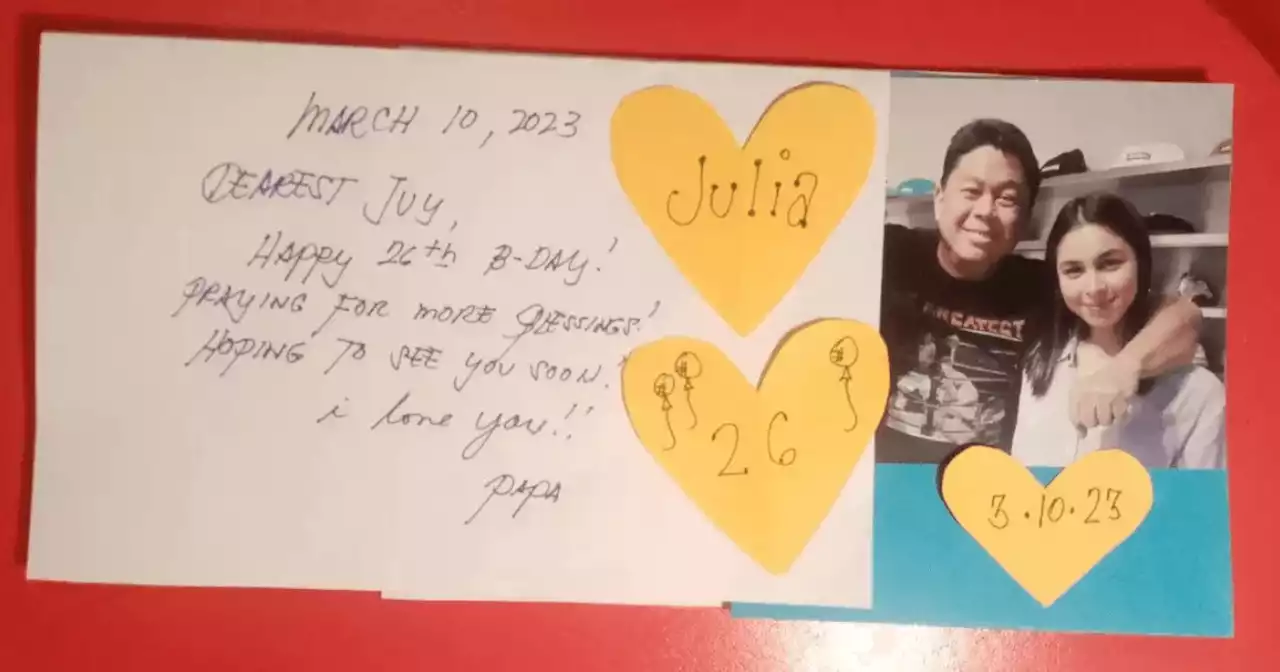 MARCH 10, 2023
DEAREST JUY,
HAPPY 26th B-DAY!
PRAYING FOR MORE BLESSINGS!
HOPING TO SEE YOU SOON!
i love you!!
PAPA
Julia
26
3.10.23